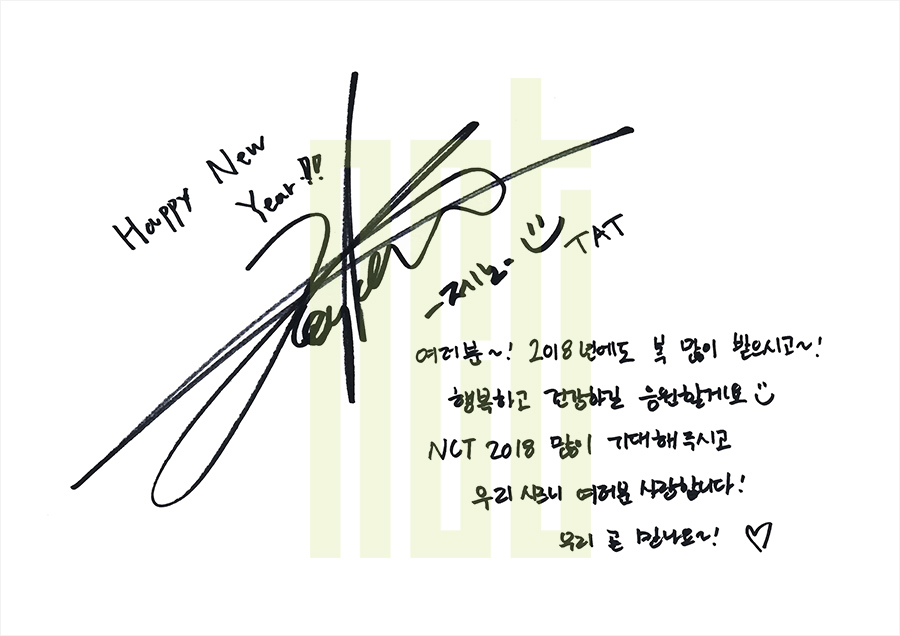 Happy New
Year!!
nct
-제노- TAT
여러분~! 2018년에도 복 많이 받으시고~!
행복하고 건강하길 응원할게요
NCT 2018 많이 기대해주시고
우리 시즈니 여러분 사랑합니다!
우리 곧 만나요~! ♡